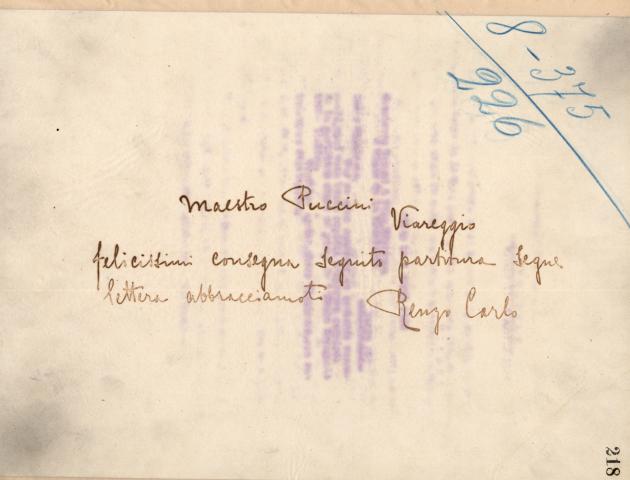 8-375
226
Maestro Puccini
Viareggio
felicissimi consegna seguito partitura segue
lettera abbracciamoti Renzo Carlo
218